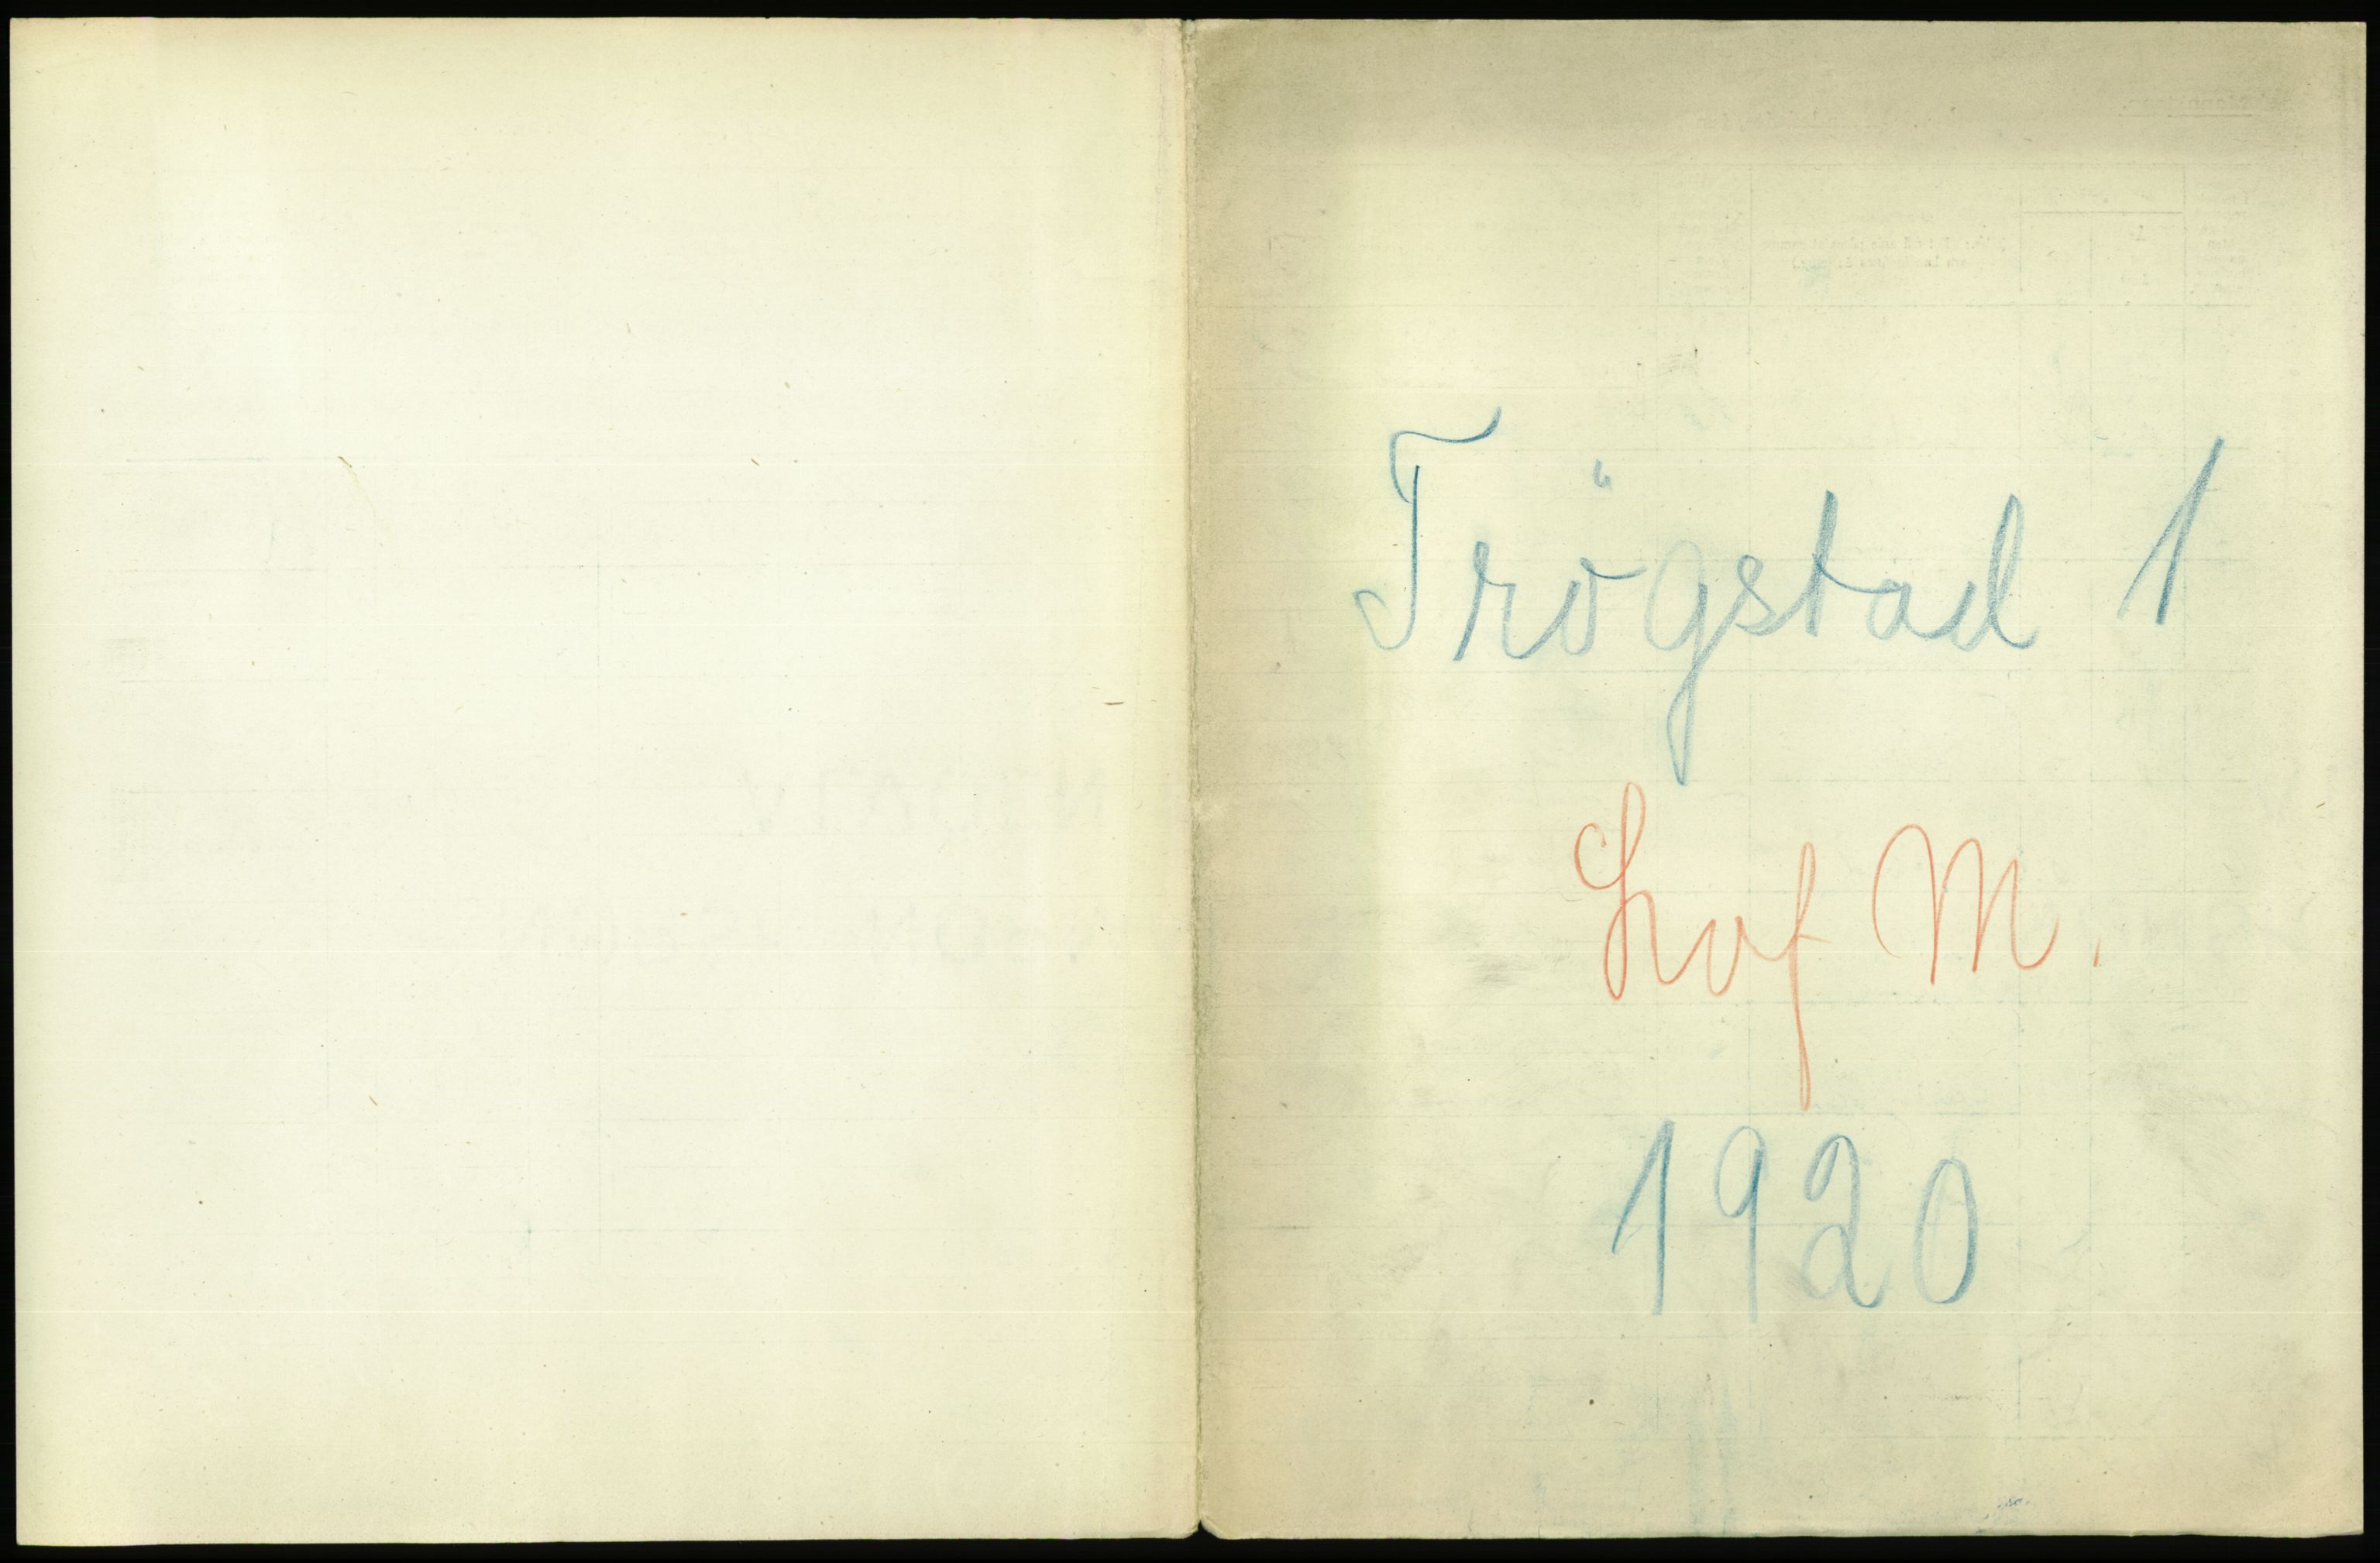 Trögstad 1
M.
1920